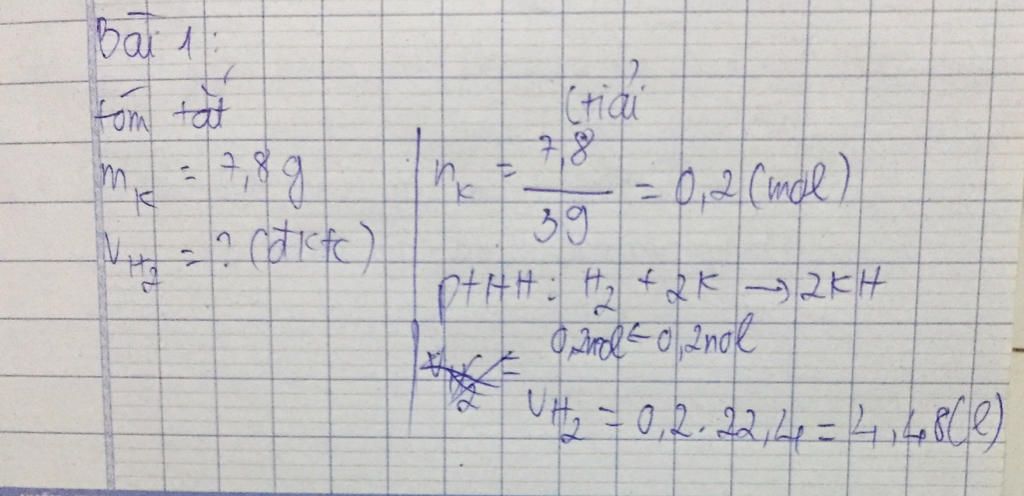 Bài 1:
tóm tắt
m_K = 7,8 g
V_H₂ = ? (đktc)
Giải
n_K = 7,8 / 39 = 0,2 (mol)
PTHH: H₂ + 2K → 2KH
0,2mol ← 0,2mol
V_H₂ = 0,2 . 22,4 = 4,48 (l)